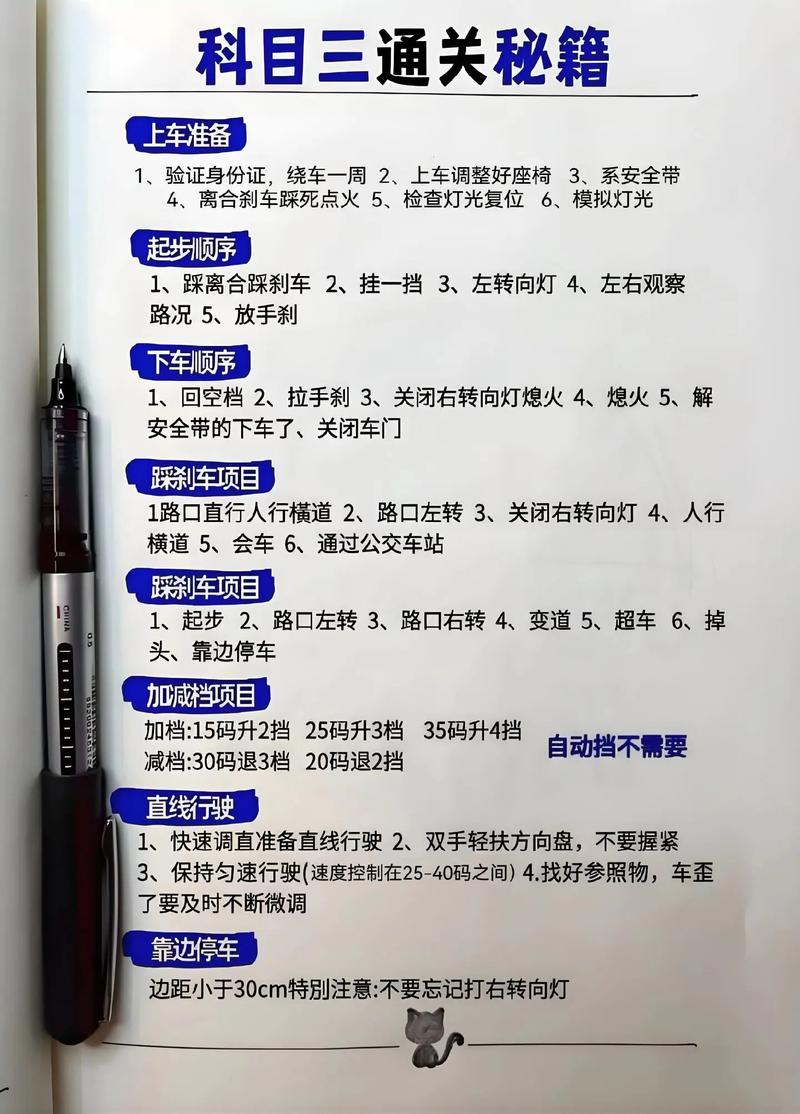 科目三通关秘籍
上车准备
1、验证身份证，绕车一周 2、上车调整好座椅 3、系安全带
4、离合刹车踩死点火 5、检查灯光复位 6、模拟灯光
起步顺序
1、踩离合踩刹车 2、挂一挡 3、左转向灯 4、左右观察
路况 5、放手刹
下车顺序
1、回空档 2、拉手刹 3、关闭右转向灯熄火 4、熄火 5、解
安全带的下车了、关闭车门
踩刹车项目
1路口直行人行橫道 2、路口左转 3、关闭右转向灯 4、人行
横道 5、会车 6、通过公交车站
踩刹车项目
1、起步 2、路口左转 3、路口右转 4、变道 5、超车 6、掉
头、靠边停车
加减档项目
加档:15码升2挡 25码升3档 35码升4挡
减档:30码退3档 20码退2挡
自动挡不需要
直线行驶
1、快速调直准备直线行驶 2、双手轻扶方向盘，不要握紧
3、保持匀速行驶(速度控制在25-40码之间) 4.找好参照物，车歪
了要及时不断微调
靠边停车
边距小于30cm特別注意:不要忘记打右转向灯
CHINA
0.5